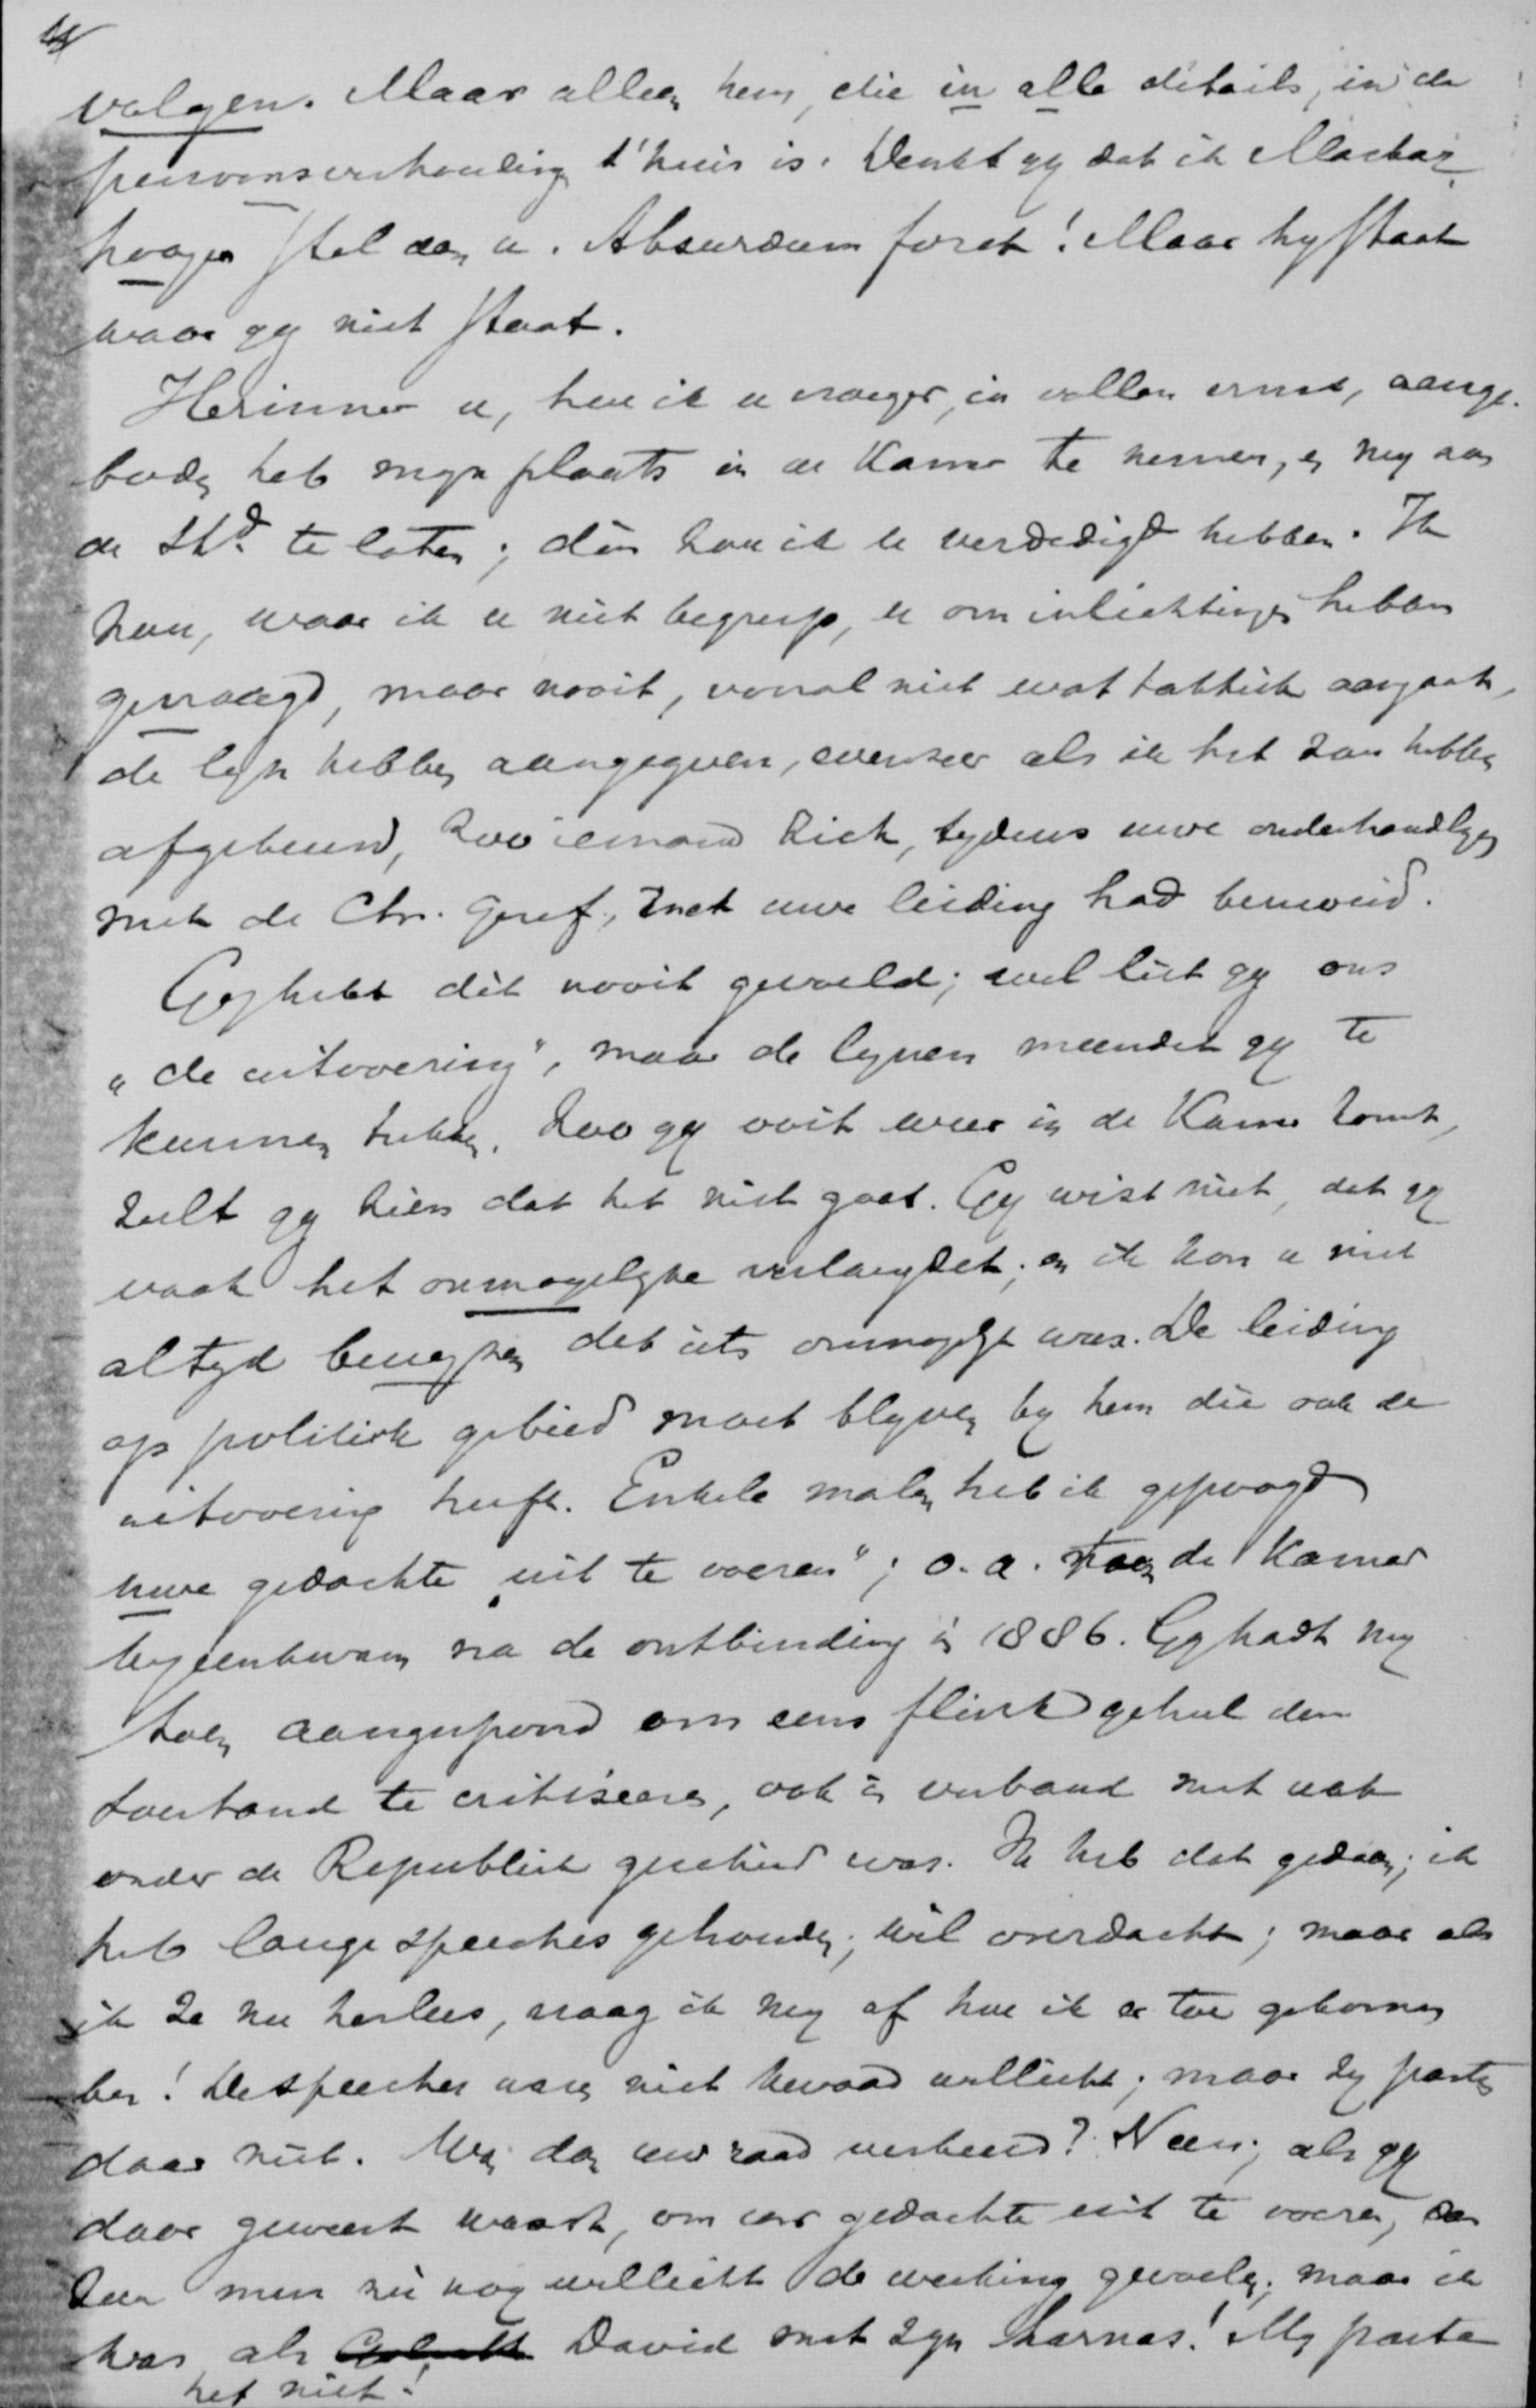 volgen. Maar alleen hem, die in alle détails, in de
persoonsverhouding t'huis is. Denkt gy dat ik Mackay
hooger stel dan u. Absurdum foret! Maar hy staat
waar gy niet staat.
Herinner u, hoe ik u vroeger, in vollen ernst, aange-
boden heb myn plaats in de Kamer te nemen, en my aan
de Std. te laten; dàn zou ik u verdedigd hebben. Ik
zou, waar ik u niet begreep, u om inlichtingen hebben
gevraagd, maar nooit, vooral niet wat taktiek aangaat,
de lyn hebben aangegeven, evenzeer als ik het zou hebben
afgekeurd, zoo iemand zich, tydens uwe onderhandelingen
met de Chr. Geref., met uwe leiding had bemoeid.
Gy hebt dit nooit gevoeld; wel liet gy ons
"de uitvoering", maar de lynen meendet gy te
kunnen trekken. Zoo gy ooit weer in de Kamer komt,
zult gy zien dat het niet gaat. Gy wist niet, dat gy
vaak het onmogelyke verlangdet; en ik kon u niet
altyd bewyzen dat iets onmogelyk was. De leiding
op politiek gebied moet blyven by hem die ook de
uitvoering heeft. Enkele malen heb ik gepoogd
uwe gedachte "uit te voeren"; o.a. toen de Kamer
byeenkwam na de ontbinding in 1886. Gy hadt my
toen aangespoord om eens flink geheel den
toestand te critiseeren, ook in verband met wat
onder de Republiek geschied was. Ik heb dat gedaan; ik
heb lange speeches gehouden; wél overdacht; maar als
ik ze nu herlees, vraag ik my af hoe ik er toe gekomen
ben! De speeches waren niet kwaad wellicht; maar zy pasten
daar niet. Was dan uw raad verkeerd? Neen; als gy
daar geweest waart, om uw gedachte uit te voeren, dan
zou men nù nog wellicht de werking gevoelen; maar ik
was als David met zyn harnas! My paste
het niet!